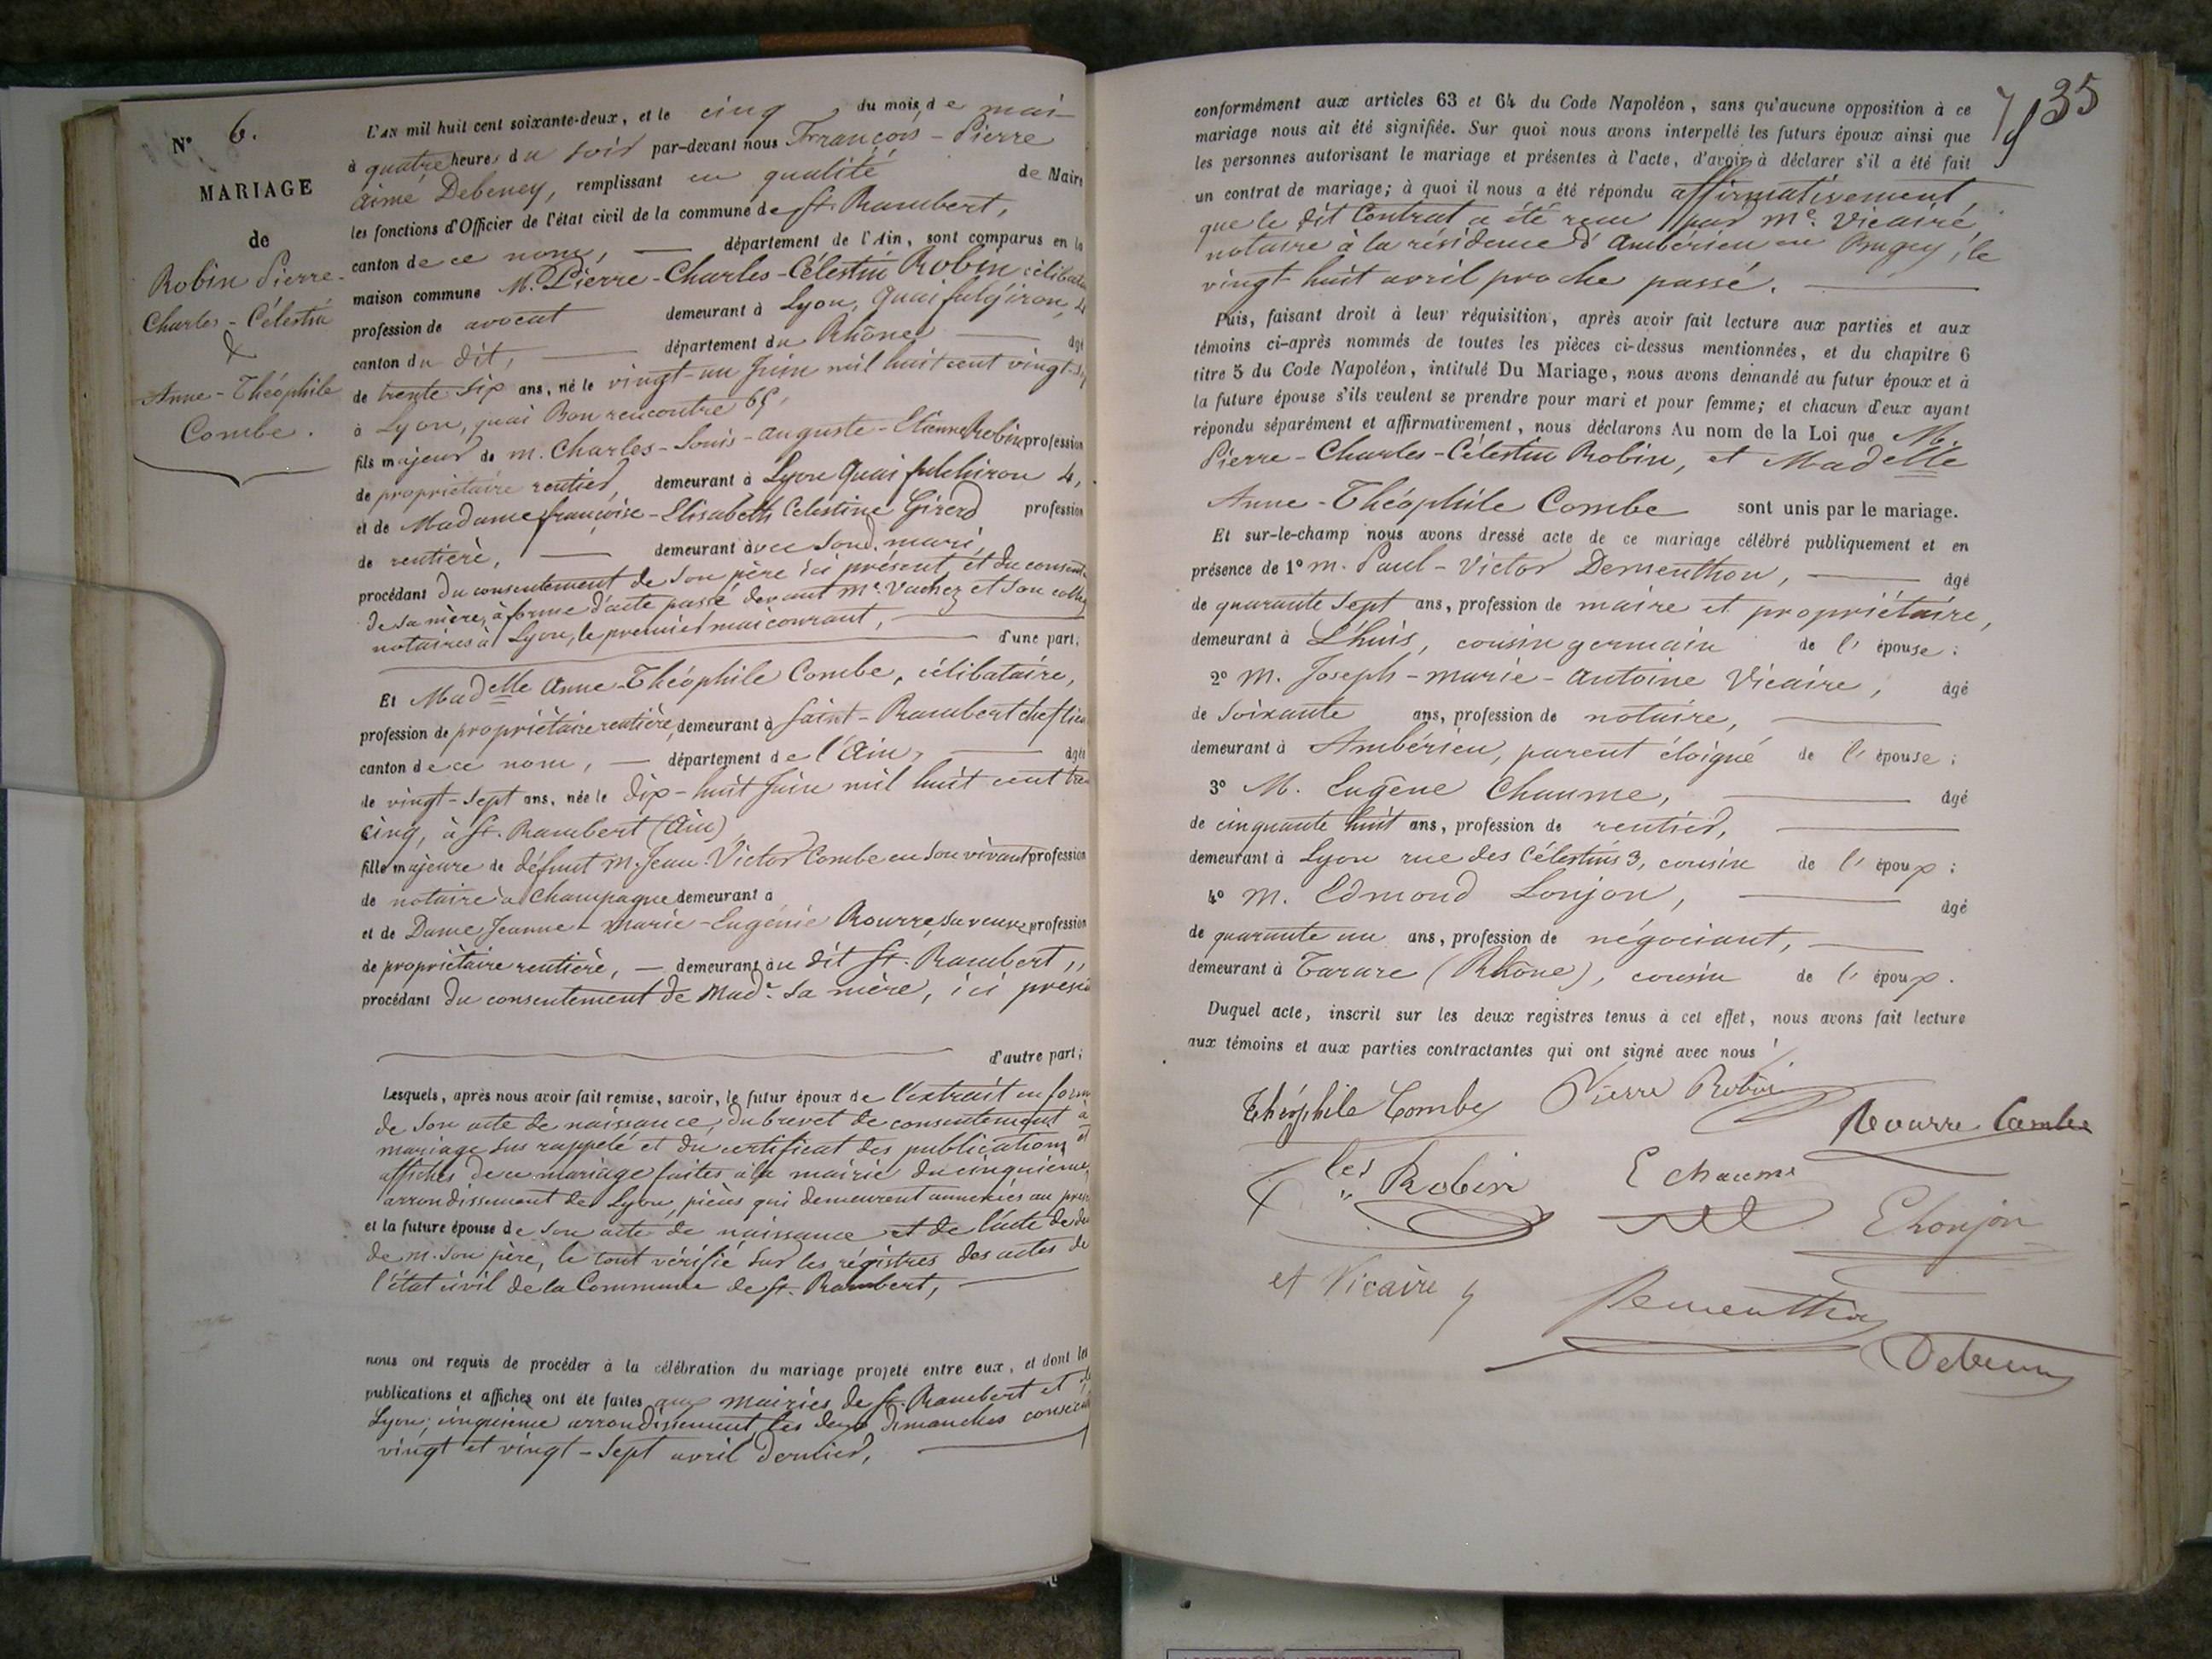 N° 6.
MARIAGE
de
Robin Pierre-
Charles-Célestin
&
Anne-Théophile
Combe.
L'AN mil huit cent soixante-deux, et le cinq du mois de mai
à quatre heures du soir par-devant nous François-Pierre
aimé Debeney, remplissant en qualité de Maire
les fonctions d'Officier de l'état civil de la commune de St. Rambert,
canton de ce nom, département de l'Ain, sont comparus en la
maison commune M. Pierre-Charles-Célestin Robin
profession de avocat demeurant à Lyon, quai fulchiron, 4
canton du dit, département du Rhône âgé
de trente six ans, né le vingt-un Juin mil huit cent vingt
à Lyon, quai Bon rencontre 69,
fils majeur de m. Charles-Louis-auguste-Etienne Robin profession
de propriétaire rentier, demeurant à Lyon quai fulchiron 4,
et de Madame françoise-Elisabeth Celestine Girerd profession
de rentière, demeurant avec son d. mari,
procédant du consentement de son père ici présent, et du
de sa mère, à forme d'acte passé devant Me. Vachez et son
notaires à Lyon, le premier mai courant,
d'une part;
Et Madelle Anne-Théophile Combe, célibataire,
profession de propriétaire rentière, demeurant à Saint-Rambert chef lieu
canton de ce nom, département de l'Ain, âgée
de vingt-sept ans, née le dix-huit Juin mil huit cent
cinq, à St. Rambert (Ain)
fille majeure de défunt M. Jean-Victor Combe en son vivant profession
de notaire à Champagne demeurant à
et de Dame Jeanne-Marie-Eugénie Rourre, sa veuve profession
de propriétaire rentière, demeurant au dit St. Rambert,,
procédant du consentement de Made. sa mère, ici
d'autre part;
Lesquels, après nous avoir fait remise, savoir, le futur époux de l'extrait en
de son acte de naissance, du brevet de consentement à
mariage sus rappelé et du certificat des publications et
affiches de ce mariage faites à la mairie du cinquième
arrondissement de Lyon, pièces qui demeurent annexées au
et la future épouse de son acte de naissance et de l'acte de
de M. son père, le tout vérifié sur les régistres des actes de
l'état civil de la Commune de St. Rambert,
nous ont requis de procéder à la célébration du mariage projeté entre eux, et dont les
publications et affiches ont été faites aux mairies de St. Rambert et
Lyon, cinquième arrondissement, les deux dimanches
vingt et vingt-sept avril dernier,
35
conformément aux articles 63 et 64 du Code Napoléon, sans qu'aucune opposition à ce
mariage nous ait été signifiée. Sur quoi nous avons interpellé les futurs époux ainsi que
les personnes autorisant le mariage et présentes à l'acte, d'avoir à déclarer s'il a été fait
un contrat de mariage; à quoi il nous a été répondu affirmativement,
que le dit Contrat a été reçu par Me. Vicaire,
notaire à la résidence d'Ambérieu en Bugey, le
vingt-huit avril proche passé.
Puis, faisant droit à leur réquisition, après avoir fait lecture aux parties et aux
témoins ci-après nommés de toutes les pièces ci-dessus mentionnées, et du chapitre 6
titre 5 du Code Napoléon, intitulé Du Mariage, nous avons demandé au futur époux et à
la future épouse s'ils veulent se prendre pour mari et pour femme; et chacun d'eux ayant
répondu séparément et affirmativement, nous déclarons Au nom de la Loi que M.
Pierre-Charles-Célestin Robin, et Madelle
Anne-Théophile Combe sont unis par le mariage.
Et sur-le-champ nous avons dressé acte de ce mariage célébré publiquement et en
présence de 1° m. Paul-Victor Dementhon, âgé
de quarante sept ans, profession de maire et propriétaire,
demeurant à L'huis, cousin germain de l' épouse;
2° M. Joseph-marie-Antoine Vicaire, âgé
de soixante ans, profession de notaire,
demeurant à Ambérieu, parent éloigné de l' épouse;
3° M. Eugène Chaume, âgé
de cinquante huit ans, profession de rentier,
demeurant à Lyon rue des Célestins 3, cousin de l' époux;
4° M. Edmond Lonjon, âgé
de quarante un ans, profession de négociant,
demeurant à Tarare (Rhône), cousin de l' époux.
Duquel acte, inscrit sur les deux registres tenus à cet effet, nous avons fait lecture
aux témoins et aux parties contractantes qui ont signé avec nous
Théophile Combe Pierre Robin
Rourre Combe
Ces Robin E Chaume
E Lonjon
et Vicaire
Dementhon
Debeney